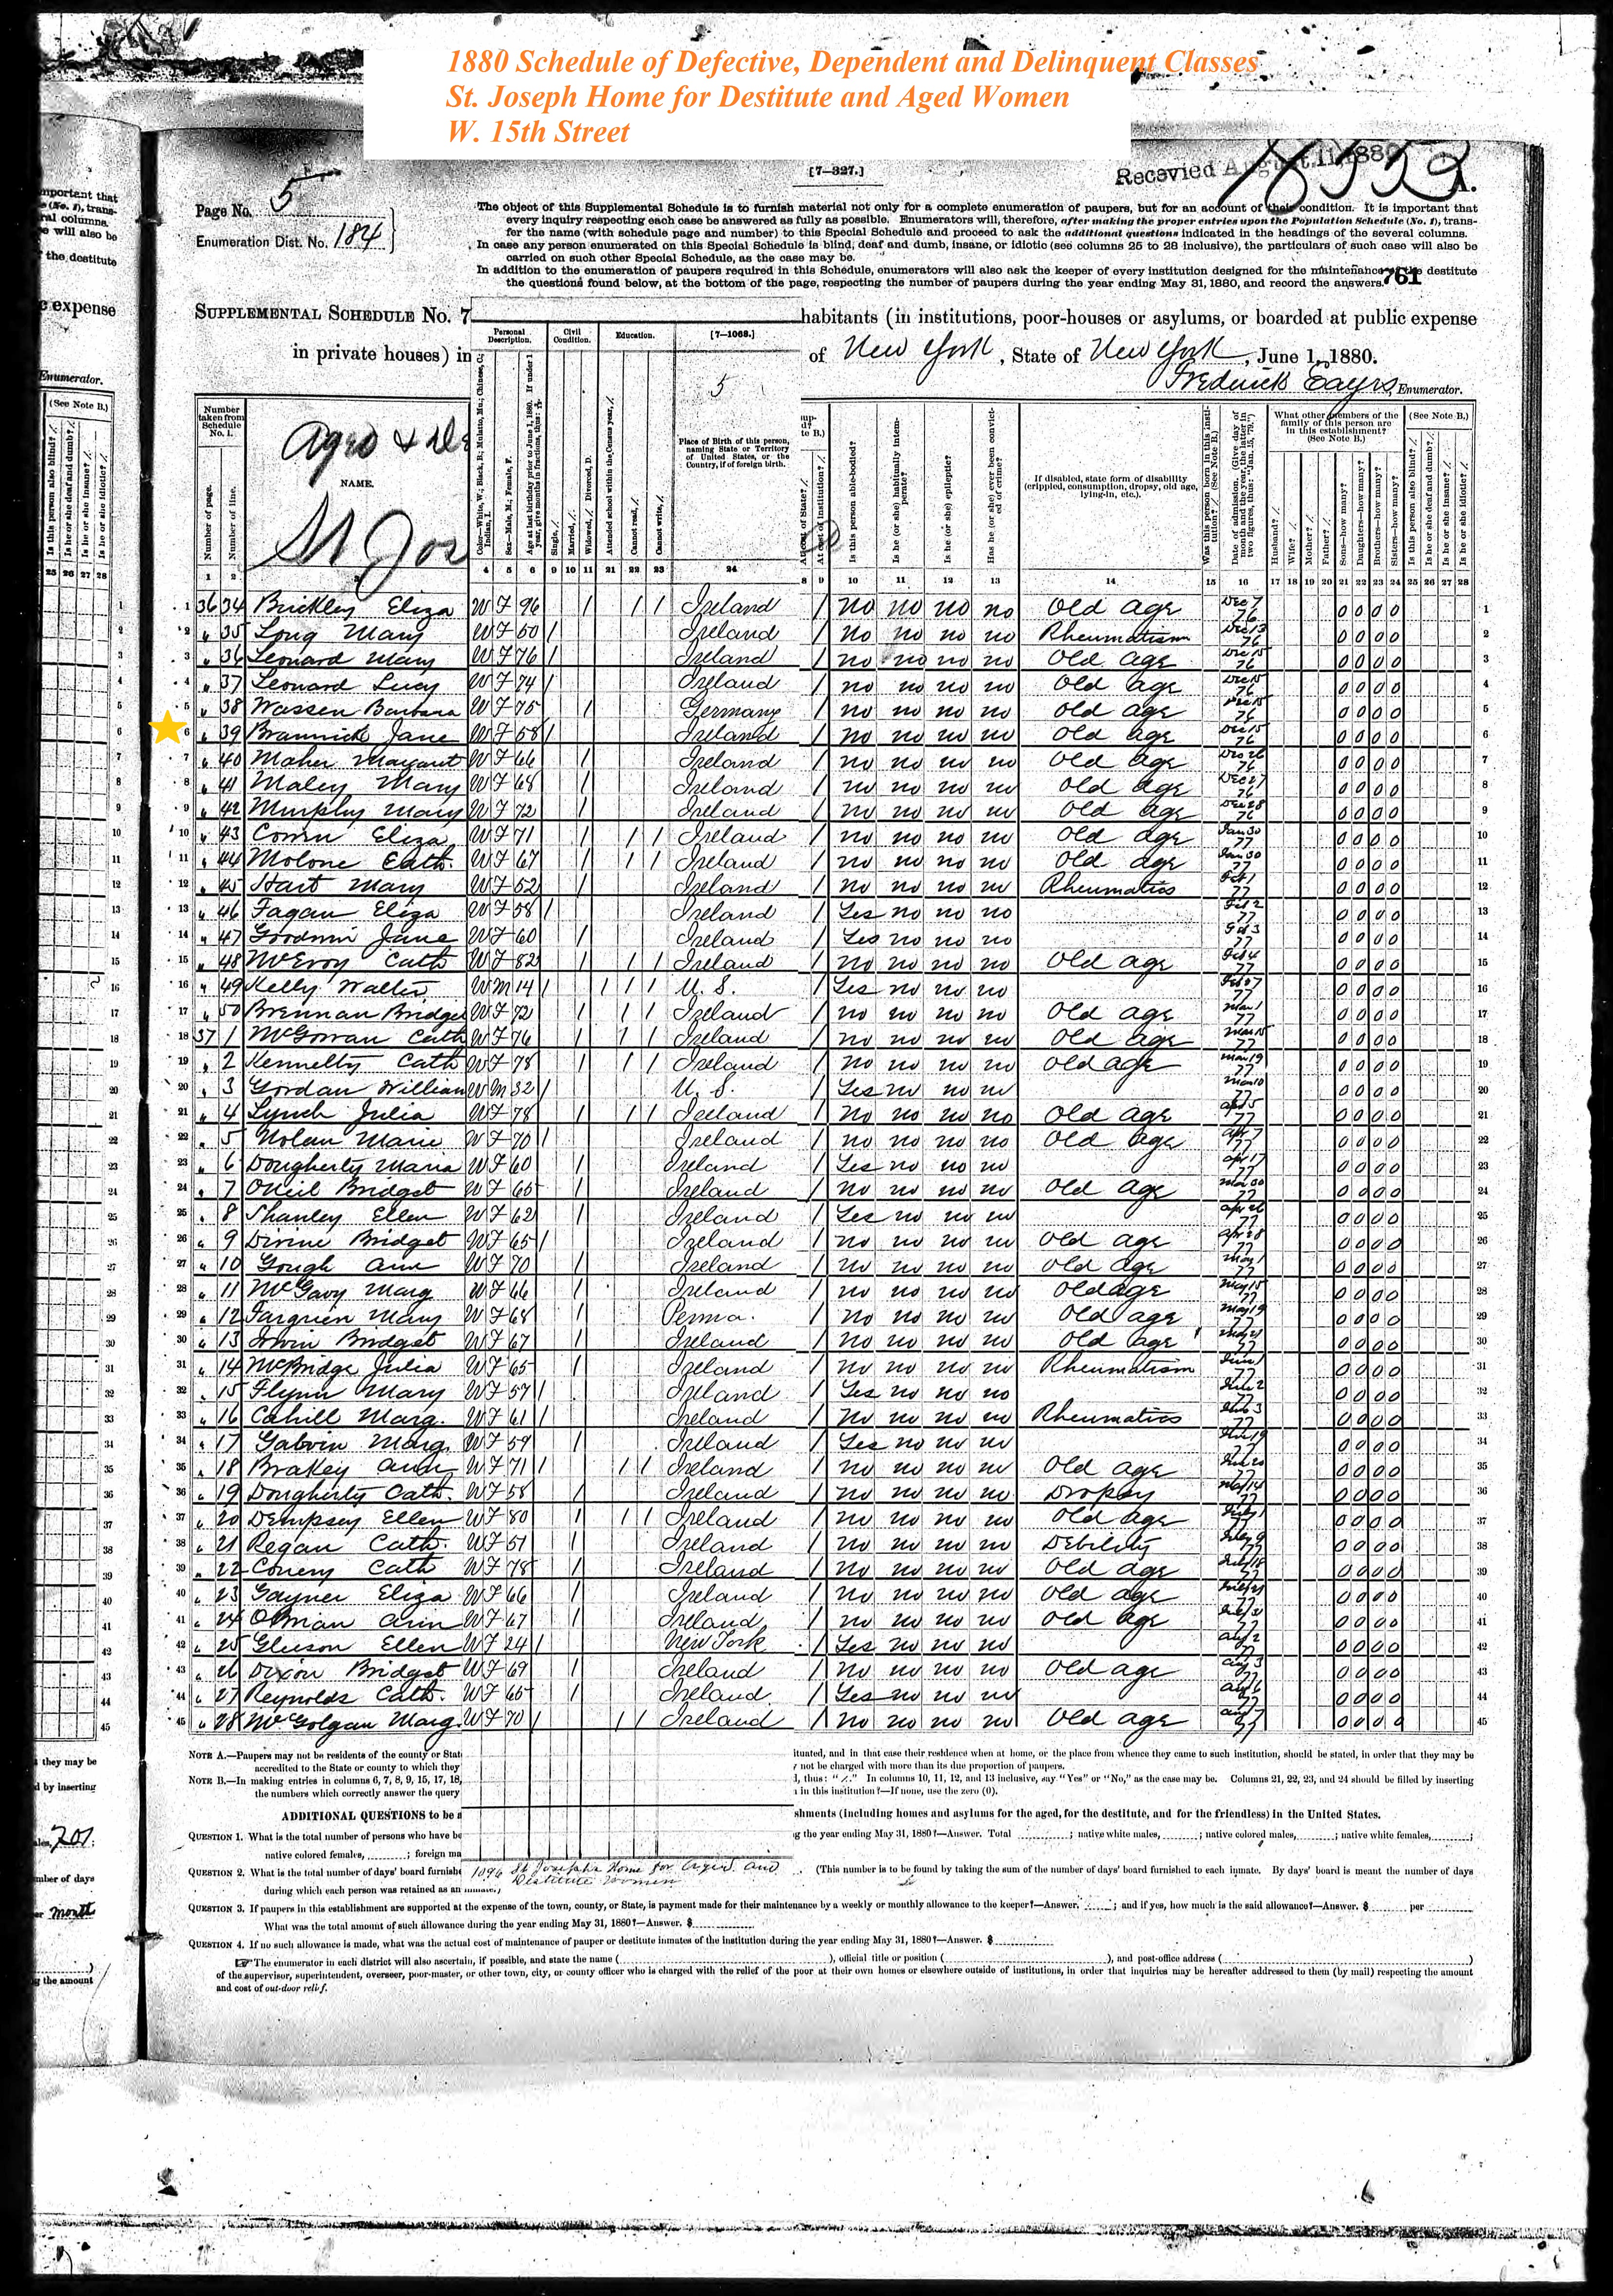 1880 Schedule of Defective, Dependent and Delinquent Classes
St. Joseph Home for Destitute and Aged Women
W. 15th Street
[7—327.]
Recevied August 11 1880
A.
Page No. 5
Enumeration Dist. No. 184
The object of this Supplemental Schedule is to furnish material not only for a complete enumeration of paupers, but for an account of their condition. It is important that
every inquiry respecting each case be answered as fully as possible. Enumerators will, therefore, after making the proper entries upon the Population Schedule (No. 1), trans-
fer the name (with schedule page and number) to this Special Schedule and proceed to ask the additional questions indicated in the headings of the several columns.
In case any person enumerated on this Special Schedule is blind, deaf and dumb, insane, or idiotic (see columns 25 to 28 inclusive), the particulars of such case will also be
carried on such other Special Schedule, as the case may be.
In addition to the enumeration of paupers required in this Schedule, enumerators will also ask the keeper of every institution designed for the maintenance of the destitute
the questions found below, at the bottom of the page, respecting the number of paupers during the year ending May 31, 1880, and record the answers.
761
SUPPLEMENTAL SCHEDULE No. 7
habitants (in institutions, poor-houses or asylums, or boarded at public expense
in private houses) in
of New York, State of New York, June 1, 1880.
Frederick Eayrs, Enumerator.
Number taken from Schedule No. 1.
Number of page.
Number of line.
Aged & De
NAME.
St Jos
Personal Description.
Civil Condition.
Education.
[7-1068.]
5
Color—White, W.; Black, B.; Mulatto, Mu.; Chinese, C.; Indian, I.
Sex—Male, M.; Female, F.
Age at last birthday prior to June 1, 1880. If under 1 year, give months in fractions, thus:
Single, /.
Married, /.
Widowed, /. Divorced, D.
Attended school within the Census year, /.
Cannot read, /.
Cannot write, /.
Place of Birth of this person, naming State or Territory of United States, or the Country, if of foreign birth.
At cost of State? /.
At cost of institution? /.
Is this person able-bodied?
Is he (or she) habitually intemperate?
Is he (or she) epileptic?
Has he (or she) ever been convicted of crime?
If disabled, state form of disability (crippled, consumption, dropsy, old age, lying-in, etc.).
Was this person born in this institution? /. (See Note B.)
Date of admission. (Give day of month and the year, the latter in two figures, thus: "Jan. 15, '79.")
What other members of the family of this person are in this establishment? (See Note B.)
Husband? /.
Wife? /.
Mother? /.
Father? /.
Sons—how many?
Daughters—how many?
Brothers—how many?
Sisters—how many?
(See Note B.)
Is this person also blind? /.
Is he or she deaf and dumb? /.
Is he or she insane? /.
Is he or she idiotic? /.
1 2 4 5 6 9 10 11 21 22 23 24 8 9 10 11 12 13 14 15 16 17 18 19 20 21 22 23 24 25 26 27 28
1 36 34 Brickley Eliza W F 96 / / / Ireland / no no no no Old age Dec 7 76 0 0 0 0 1
2 " 35 Long Mary W F 50 / Ireland / no no no no Rheumatism Dec 13 76 0 0 0 0 2
3 " 36 Leonard Mary W F 76 / Ireland / no no no no Old age Dec 15 76 0 0 0 0 3
4 " 37 Leonard Lucy W F 74 / Ireland / no no no no Old age Dec 15 76 0 0 0 0 4
5 " 38 Wassen Barbara W F 75 / Germany / no no no no Old age Dec 15 76 0 0 0 0 5
6 " 39 Brannick Jane W F 58 / Ireland / no no no no Old age Dec 15 76 0 0 0 0 6
7 " 40 Maher Margaret W F 66 / Ireland / no no no no Old age Dec 26 76 0 0 0 0 7
8 " 41 Maley Mary W F 68 / Ireland / no no no no Old age Dec 27 76 0 0 0 0 8
9 " 42 Murphy Mary W F 72 / Ireland / no no no no Old age Dec 28 76 0 0 0 0 9
10 " 43 Eliza W F 71 / / / Ireland / no no no no Old age Jan 30 77 0 0 0 0 10
11 " 44 Molone Cath. W F 67 / / / Ireland / no no no no Old age Jan 30 77 0 0 0 0 11
12 " 45 Hart Mary W F 52 / Ireland / no no no no Rheumatics Feb 1 77 0 0 0 0 12
13 " 46 Fagan Eliza W F 58 / Ireland / Yes no no no Feb 2 77 0 0 0 0 13
14 " 47 Goodwin Jane W F 60 / Ireland / Yes no no no Feb 3 77 0 0 0 0 14
15 " 48 McEvoy Cath W F 82 / / / Ireland / no no no no Old age Feb 4 77 0 0 0 0 15
16 " 49 Kelly Walter W M 14 / / / / U. S. / Yes no no no Feb 27 77 0 0 0 0 16
17 " 50 Brennan Bridget W F 72 / / / Ireland / no no no no Old age Mar 1 77 0 0 0 0 17
18 37 1 McGowan Cath W F 76 / / / Ireland / no no no no Old age Mar 15 77 0 0 0 0 18
19 " 2 Kennelty Cath W F 78 / / / Ireland / no no no no Old age Mar 19 77 0 0 0 0 19
20 " 3 Gordan William W M 32 / U. S. / Yes no no no Mar 10 77 0 0 0 0 20
21 " 4 Lynch Julia W F 78 / / / Ireland / no no no no Old age Apr 5 77 0 0 0 0 21
22 " 5 Nolan Marie W F 70 / Ireland / no no no no Old age Apr 7 77 0 0 0 0 22
23 " 6 Dougherty Maria W F 60 / Ireland / Yes no no no Apr 17 77 0 0 0 0 23
24 " 7 ONeil Bridget W F 65 / Ireland / no no no no Old age Mar 30 77 0 0 0 0 24
25 " 8 Shanley Ellen W F 62 / Ireland / Yes no no no Apr 26 77 0 0 0 0 25
26 " 9 Divine Bridget W F 65 / Ireland / no no no no Old age Apr 28 77 0 0 0 0 26
27 " 10 Gough Ann W F 70 / Ireland / no no no no Old age May 1 77 0 0 0 0 27
28 " 11 McGavy Marg W F 66 / Ireland / no no no no Old age May 15 77 0 0 0 0 28
29 " 12 Mary W F 68 / Penna. / no no no no Old age May 19 77 0 0 0 0 29
30 " 13 Irwin Bridget W F 67 / Ireland / no no no no Old age May 21 77 0 0 0 0 30
31 " 14 McBridge Julia W F 65 / Ireland / no no no no Rheumatism June 1 77 0 0 0 0 31
32 " 15 Flynn Mary W F 57 / Ireland / Yes no no no June 2 77 0 0 0 0 32
33 " 16 Cahill Marg. W F 61 / Ireland / no no no no Rheumatics 3 77 0 0 0 0 33
34 " 17 Galvin Marg. W F 59 / Ireland / Yes no no no 19 77 0 0 0 0 34
35 " 18 Brakey Ann W F 71 / / / Ireland / no no no no Old age 20 77 0 0 0 0 35
36 " 19 Dougherty Cath. W F 58 / Ireland / no no no no Dropsy 14 77 0 0 0 0 36
37 " 20 Dempsey Ellen W F 80 / / / Ireland / no no no no Old age July 1 77 0 0 0 0 37
38 " 21 Regan Cath. W F 51 / Ireland / no no no no Debility July 9 77 0 0 0 0 38
39 " 22 Conery Cath W F 78 / Ireland / no no no no Old age July 18 77 0 0 0 0 39
40 " 23 Gayner Eliza W F 66 / Ireland / no no no no Old age July 21 77 0 0 0 0 40
41 " 24 OBrian Ann W F 67 / Ireland / no no no no Old age July 31 77 0 0 0 0 41
42 " 25 Gleeson Ellen W F 24 / New York / Yes no no no Aug 2 77 0 0 0 0 42
43 " 26 Dixon Bridget W F 69 / Ireland / no no no no Old age Aug 3 77 0 0 0 0 43
44 " 27 Reynolds Cath. W F 65 / Ireland / Yes no no no Aug 6 77 0 0 0 0 44
45 " 28 McGolgan Marg. W F 70 / / / Ireland / no no no no Old age Aug 7 77 0 0 0 0 45
NOTE A.—Paupers may not be residents of the county or Stat
ituated, and in that case their residence when at home, or the place from whence they came to such institution, should be stated, in order that they may be
accredited to the State or county to which they
not be charged with more than its due proportion of paupers.
NOTE B.—In making entries in columns 6, 7, 8, 9, 15, 17, 18,
, thus: "/." In columns 10, 11, 12, and 13 inclusive, say "Yes" or "No," as the case may be. Columns 21, 22, 23, and 24 should be filled by inserting
the numbers which correctly answer the query
in this institution?—If none, use the zero (0).
ADDITIONAL QUESTIONS to be a
shments (including homes and asylums for the aged, for the destitute, and for the friendless) in the United States.
QUESTION 1. What is the total number of persons who have be
g the year ending May 31, 1880?—Answer. Total ; native white males, ; native colored males, ; native white females, ;
native colored females, ; foreign ma
QUESTION 2. What is the total number of days' board furnishe
1096 St Joseph's Home for Aged and
Destitute Women
(This number is to be found by taking the sum of the number of days' board furnished to each inmate. By days' board is meant the number of days
during which each person was retained as an inmate.)
QUESTION 3. If paupers in this establishment are supported at the expense of the town, county, or State, is payment made for their maintenance by a weekly or monthly allowance to the keeper?—Answer. ; and if yes, how much is the said allowance?—Answer. $ per
What was the total amount of such allowance during the year ending May 31, 1880?—Answer. $
QUESTION 4. If no such allowance is made, what was the actual cost of maintenance of pauper or destitute inmates of the institution during the year ending May 31, 1880?—Answer. $
The enumerator in each district will also ascertain, if possible, and state the name ( ), official title or position ( ), and post-office address ( )
of the supervisor, superintendent, overseer, poor-master, or other town, city, or county officer who is charged with the relief of the poor at their own homes or elsewhere outside of institutions, in order that inquiries may be hereafter addressed to them (by mail) respecting the amount
and cost of out-door relief.